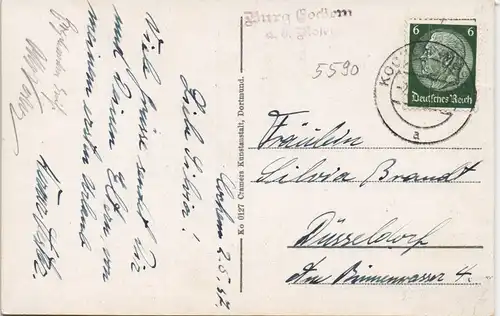 Cochem 2.5.37
Liebe Silvia!
Viele Grüße sendet Dir
und Deinen Eltern am
meinem ersten Urlaub
Burg Cochem
a. d. Mosel
5590
6 6
Deutsches Reich
KOC
a
Fräulein
Silvia Brandt
Düsseldorf
Am Binnenwasser 4.
Ko 0127 Cramers Kunstanstalt, Dortmund.